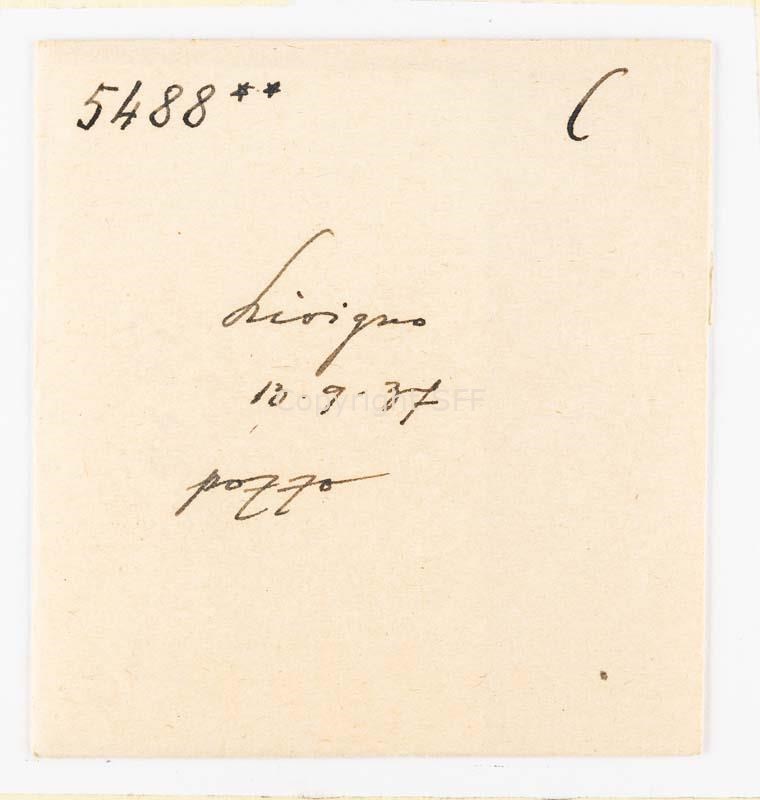 5488** C
Livigno
12-9-37
pozzo
Copyright SFF